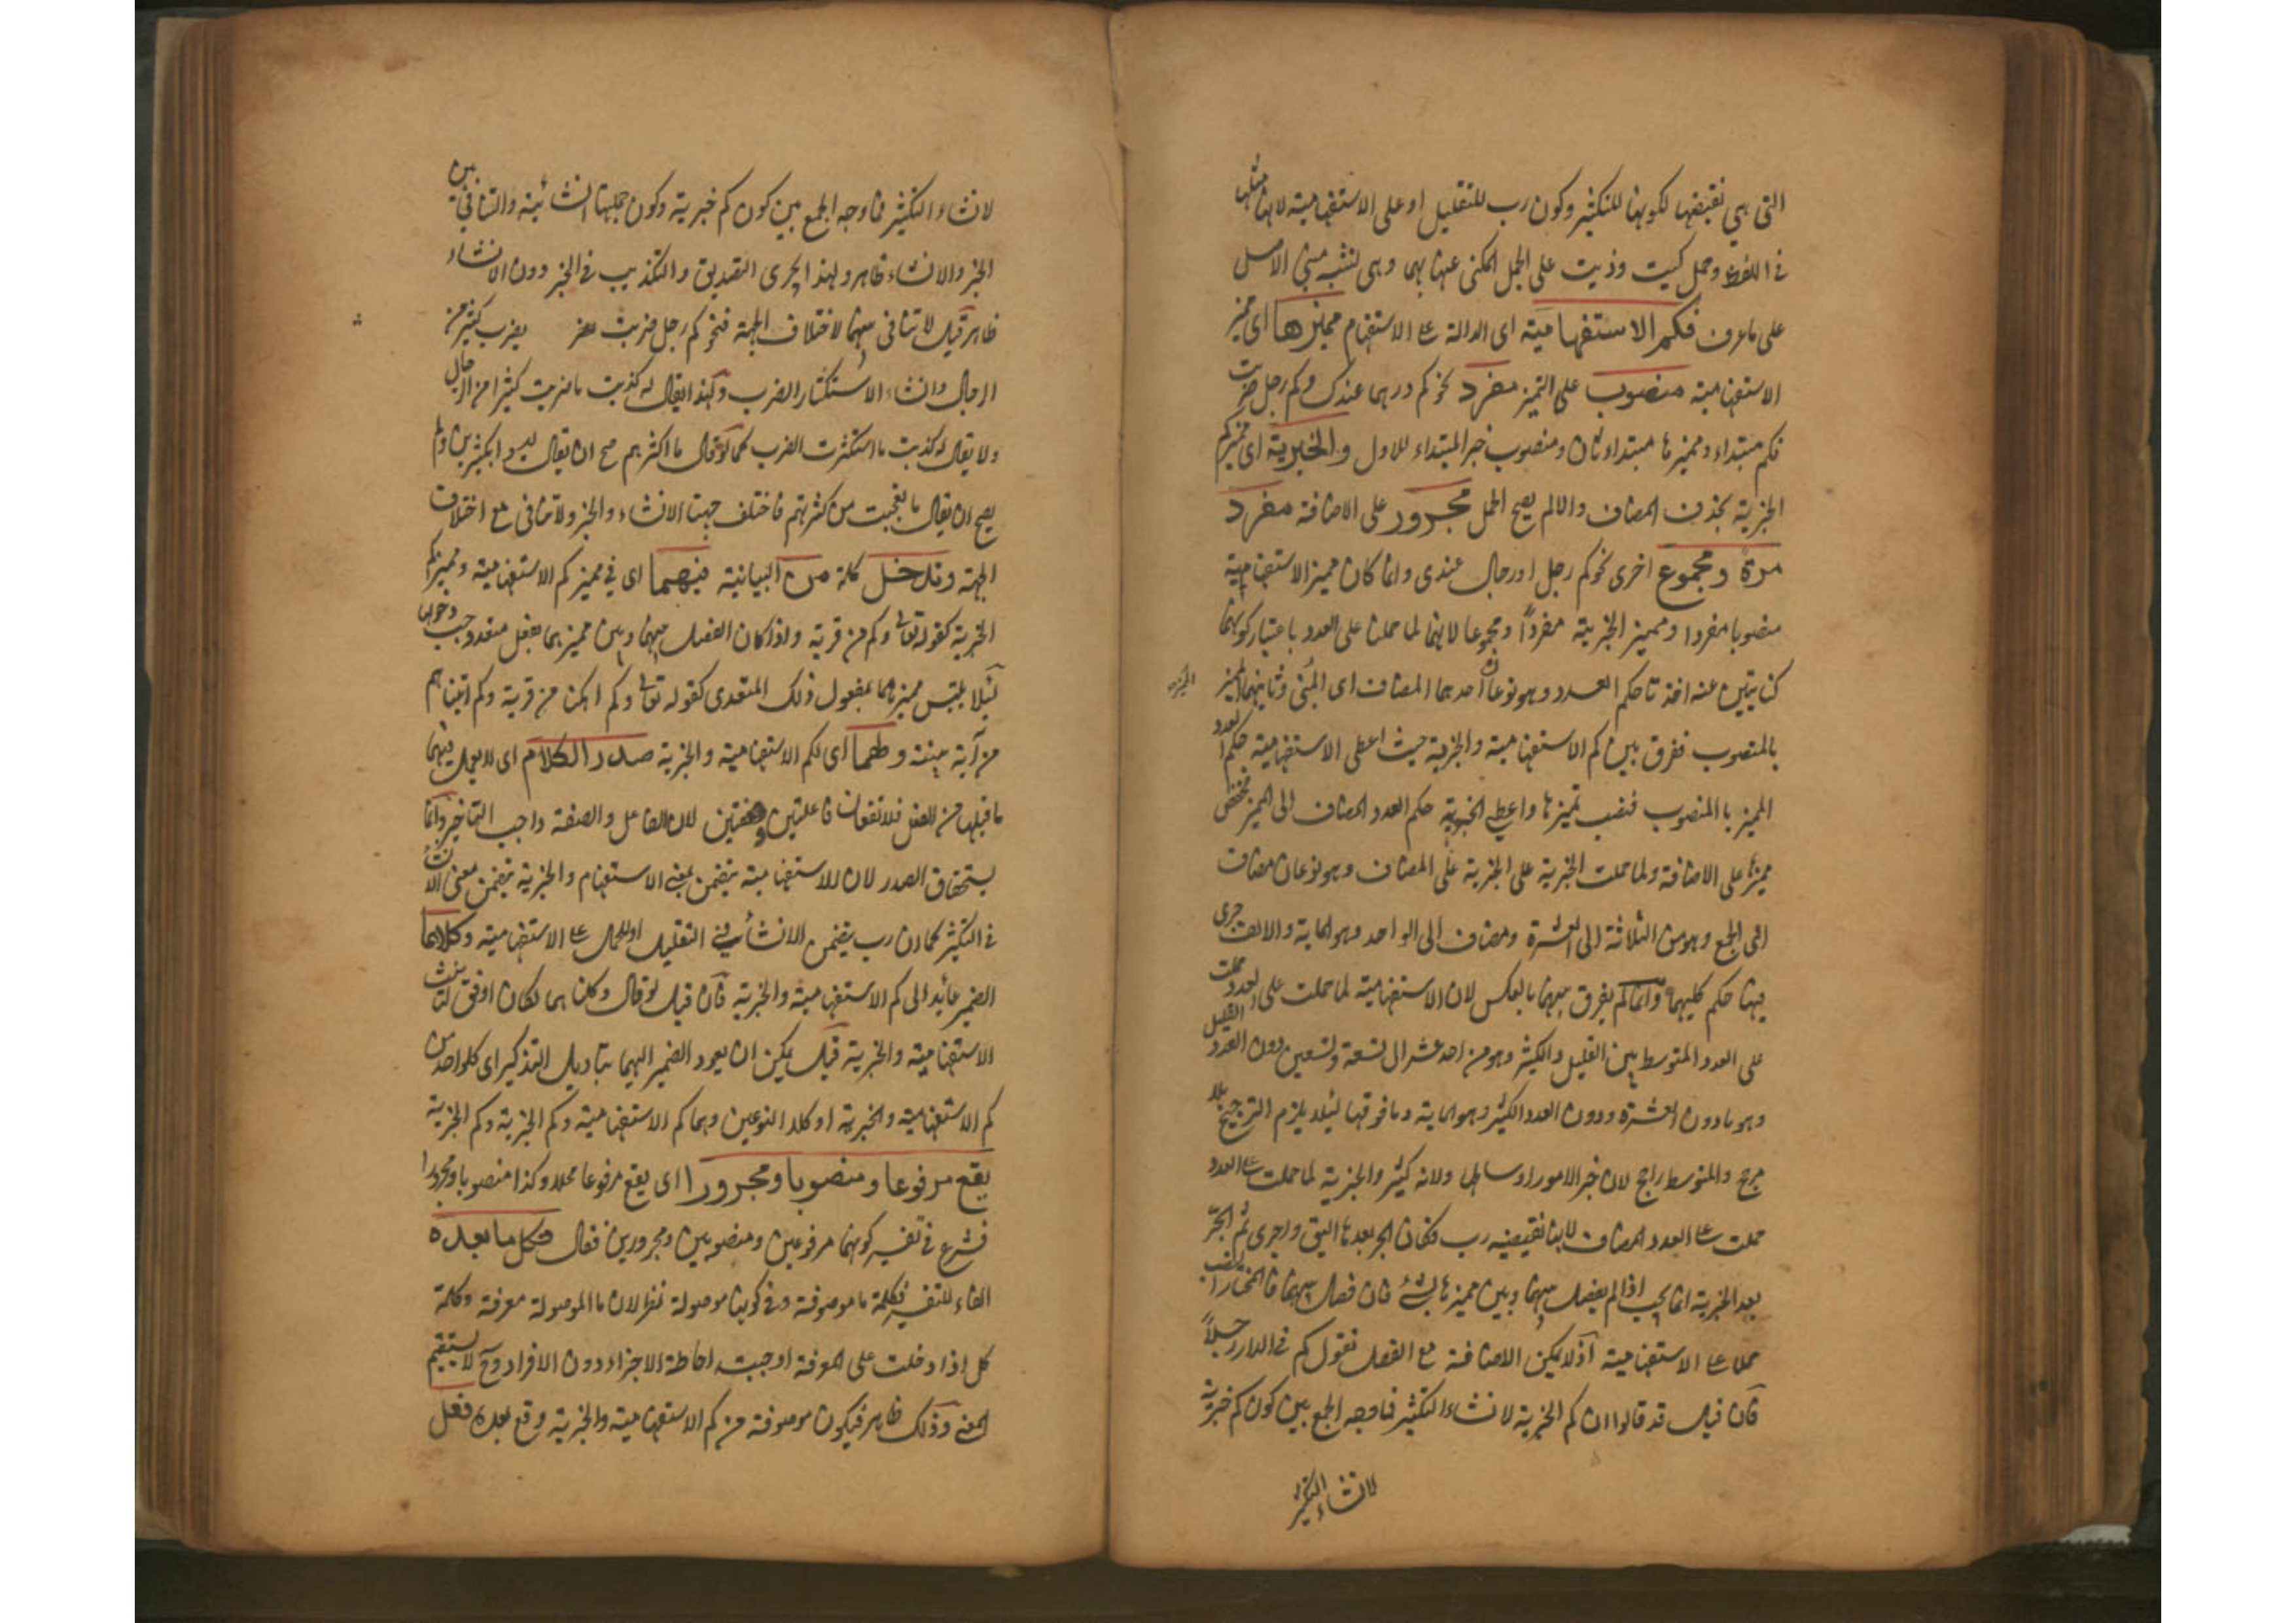 التى هي نقيضها لكونها للتكثير وكون رب للتقليل او على الاستفهامية لانها مثلها
في اللفظ وحمل كيت وذيت على الجمل المكنى عنها بهما وهى تشبه مبنى الاصل
على ما عرف فكم الاستفهامية اى الدالة على الاستفهام مميزها اى مميز
الاستفهامية منصوب على التميز مفرد نحو كم درهما عندك وكم رجل ضربت
فكم مبتداء ومميزها مبتداء ثان ومنصوب خبر المبتداء للاول والخبرية اى مميز كم
الخبرية بحذف المضاف والا لم يصح الحمل مجرور على الاضافة مفرد
مرة ومجموع اخرى نحو كم رجل او رجال عندى وانما كان مميز الاستفهامية
منصوبا مفردا ومميز الخبرية مفرداً ومجموعا لانهما لما حملتا على العدد باعتبار كونهما
كنايتين عنه اخذتا حكم العدد وهو نوعان احدهما المضاف اى المئى وثانيهما المميز
بالمنصوب ففرق بين كم الاستفهامية والخبرية حيث اعطى الاستفهامية حكم العدد
المميز بالمنصوب فنصب تميزها واعطى الخبرية حكم العدد المضاف الى المميز فخفض
مميزها على الاضافة ولما حملت الخبرية على الخبرية على المضاف وهو نوعان مضاف
الى الجمع وهو من الثلاثة الى العشرة ومضاف الى الواحد وهو المائة والالف جرى
فيها حكم كليهما وانما لم يفرق بينهما بالعكس لان الاستفهامية لما حملت على العدد حملت
على العدد المتوسط بين القليل والكثير وهو من احد عشر الى تسعة وتسعين دون العدد القليل
وهو ما دون العشرة ودون العدد الكثير وهو المائة وما فوقها لئلا يلزم الترجيح بلا
مرجح والمتوسط راجح لان خير الامور اوساطها ولانه كثير والخبرية لما حملت على العدد
حملت على العدد المضاف لانها نقيضة رب فكان الجر بعدها اليق واحرى ثم الجر
بعد الخبرية انما يجب اذا لم يفصل بينها وبين مميزها بشئ فان فصل بينهما فالمختار النصب
حملا على الاستفهامية اذ لا يمكن الاضافة مع الفصل تقول كم في الدار رجلاً
فان قيل قد قالوا ان كم الخبرية لانشاء التكثير فما وجه الجمع بين كون كم خبرية
لانشاء التكثير
لانشاء التكثير فما وجه الجمع بين كون كم خبرية وكون جملتها انشائية والتنافى بين
الخبر والانشاء ظاهر ولهذا يجرى التصديق والتكذيب في الخبر دون الانشاء
ظاهر قيل لا تنافى بينهما لاختلاف الجهة فنحو كم رجل ضربت يضرب كثير من
الرجال وانشاء الاستكثار الضرب ولهذا يقال له كذبت ما ضربت كثيرا من الرجال
ولا يقال له كذبت ما استكثرت الضرب كما لو قال ما اكثرهم صح ان يقال ليسوا بكثيرين ولم
يصح ان يقال ما تعجبت من كثرتهم فاختلف جهتا الانشاء والخبر ولا تنافى مع اختلاف
الجهة وتدخل كلمة من البيانية فيهما اى في مميز كم الاستفهامية ومميز كم
الخبرية كقوله تعالى وكم من قرية واذا كان الفصل بينهما وبين مميزهما بفعل متعد وجب دخولها
لئلا يلتبس مميزهما بمفعول ذلك المتعدى كقوله تعالى وكم اهلكنا من قرية وكم آتيناهم
من آية بينة ولهما اى لكم الاستفهامية والخبرية صدر الكلام اى لا يعمل فيهما
ما قبلهما من الفعل فلا تقعان فاعلتين وصفتين لان الفاعل والصفة واجب التاخير وانما
يستحقان الصدر لان الاستفهامية يتضمن معنى الاستفهام والخبرية يتضمن معنى الانشاء
في التكثير كما ان رب يتضمن الانشاء في التقليل او للحمل على الاستفهامية وكلاهما
الضمير عائد الى كم الاستفهامية والخبرية فان قيل لو قال وكلتاهما لكان اوفق لتانيث
الاستفهامية والخبرية قيل يمكن ان يعود الضمير اليهما بتاويل التذكير اى كل واحد من
كم الاستفهامية والخبرية او كلا النوعين وهما كم الاستفهامية وكم الخبرية وكم الخبرية
يقع مرفوعا ومنصوبا ومجرورا اى يقع مرفوعا محلا وكذا منصوبا ومجرورا
فشرع في تفسير كونهما مرفوعين ومنصوبين ومجرورين فقال فكل ما بعده
الفاء للتفسير فكلمة ما موصوفة وفى كونها موصولة نظر لان ما الموصولة معرفة وكلمة
كل اذا دخلت على المعرفة اوجبت احاطة الاجزاء دون الافراد وح لا يستقيم
المعنى وذلك ظاهر فيكون موصوفة من كم الاستفهامية والخبرية وقع بعده فعل